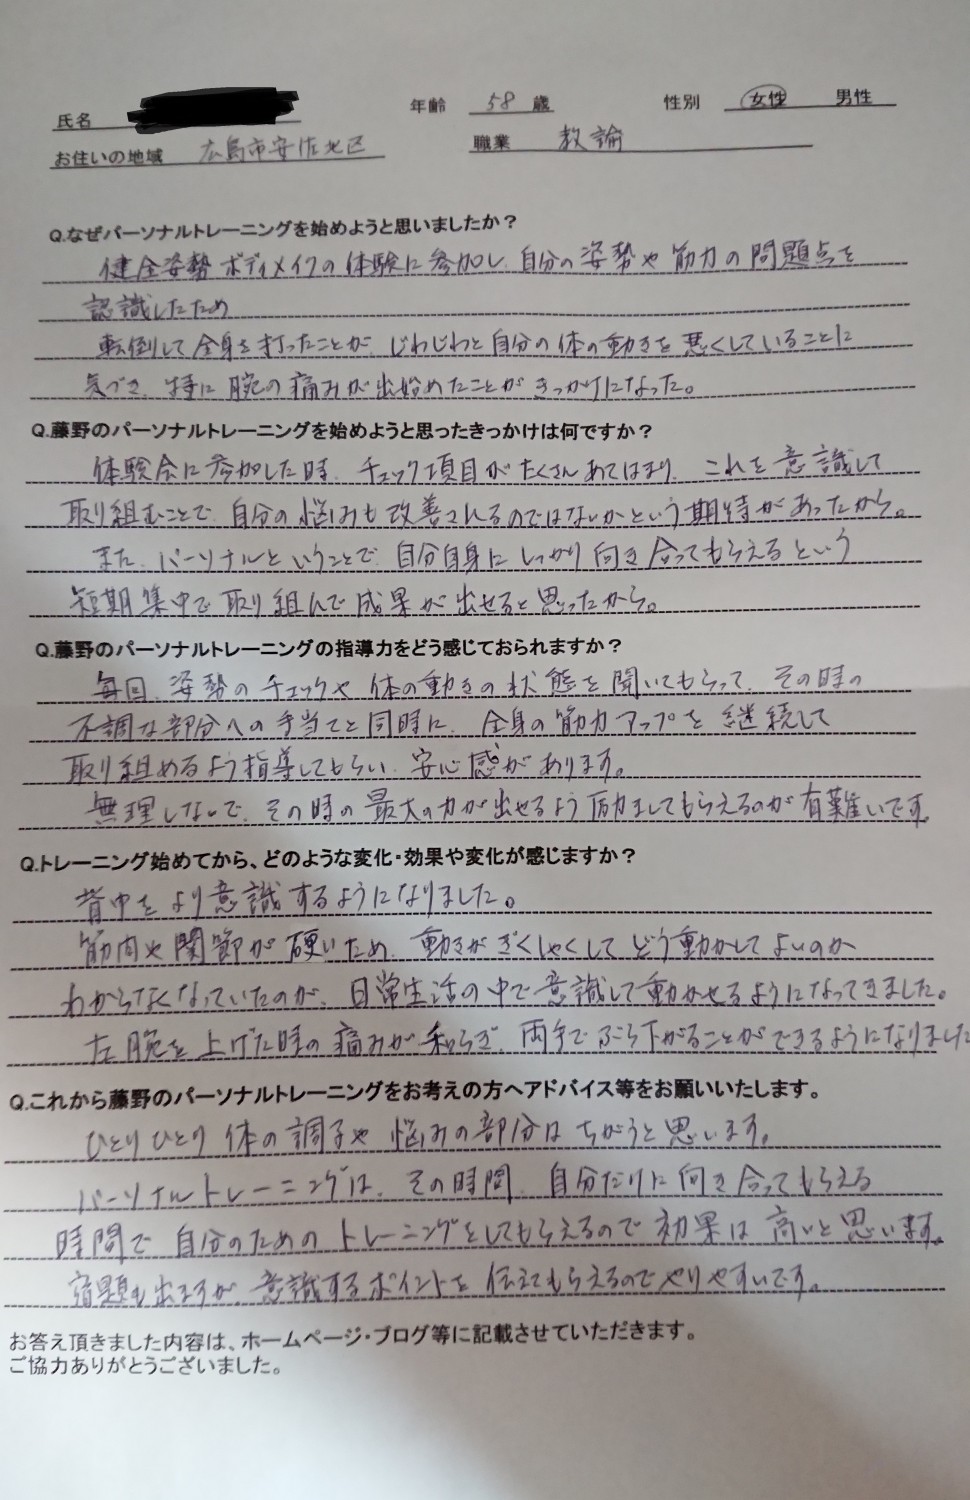 氏名
年齢 58 歳
性別 女性 男性
お住いの地域 広島市安佐北区
職業 教諭
Q.なぜパーソナルトレーニングを始めようと思いましたか？
健全姿勢ボディメイクの体験に参加し、自分の姿勢や筋力の問題点を
認識したため
転倒して全身を打ったことが、じわじわと自分の体の動きを悪くしていることに
気づき、特に腕の痛みが出始めたことがきっかけになった。
Q.藤野のパーソナルトレーニングを始めようと思ったきっかけは何ですか？
体験会に参加した時、チェック項目がたくさんあてはまり、これを意識して
取り組むことで、自分の悩みも改善されるのではないかという期待があったから。
また、パーソナルということで、自分自身にしっかり向き合ってもらえるという
短期集中で取り組んで成果が出せると思ったから。
Q.藤野のパーソナルトレーニングの指導力をどう感じておられますか？
毎回、姿勢のチェックや体の動きの状態を聞いてもらって、その時の
不調な部分への手当てと同時に、全身の筋力アップを継続して
取り組めるよう指導してもらい、安心感があります。
無理しないで、その時の最大の力が出せるよう励ましてもらえるのが有難いです。
Q.トレーニング始めてから、どのような変化・効果や変化が感じますか？
背中をより意識するようになりました。
筋肉や関節が硬いため、動きがぎくしゃくしてどう動かしてよいのか
わからなくなっていたのが、日常生活の中で意識して動かせるようになってきました。
左腕を上げた時の痛みが和らぎ、両手でぶら下がることができるようになりました
Q.これから藤野のパーソナルトレーニングをお考えの方へアドバイス等をお願いいたします。
ひとりひとり体の調子や悩みの部分はちがうと思います。
パーソナルトレーニングは、その時間、自分だけに向き合ってもらえる
時間で自分のためのトレーニングをしてもらえるので効果は高いと思います。
宿題も出ますが、意識するポイントを伝えてもらえるのでやりやすいです。
お答え頂きました内容は、ホームページ・ブログ等に記載させていただきます。
ご協力ありがとうございました。